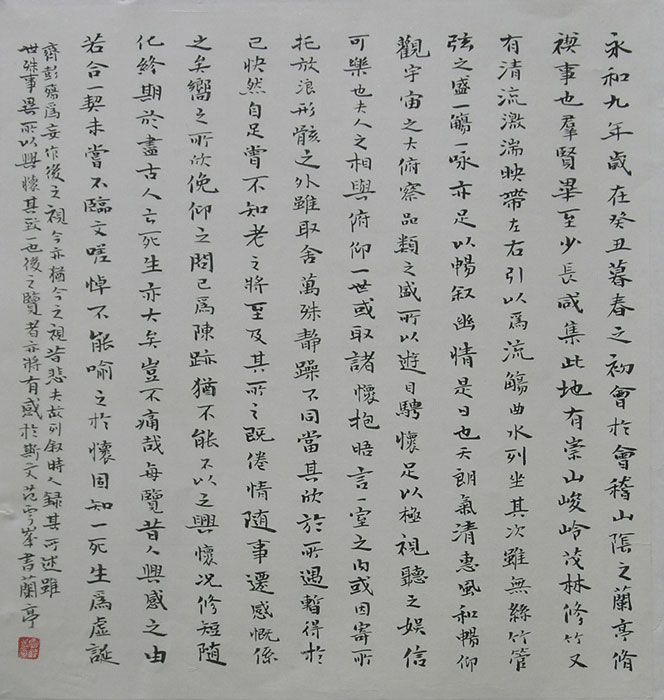 永和九年歲在癸丑暮春之初會於會稽山陰之蘭亭脩
禊事也羣賢畢至少長咸集此地有崇山峻岭茂林修竹又
有清流激湍映帶左右引以爲流觴曲水列坐其次雖無絲竹管
弦之盛一觴一咏亦足以暢叙幽情是日也天朗氣清惠風和暢仰
觀宇宙之大俯察品類之盛所以遊目騁懷足以極視聽之娱信
可樂也夫人之相與俯仰一世或取諸懷抱晤言一室之內或因寄所
托放浪形骸之外雖取舍萬殊靜躁不同當其欣於所遇暫得於
己快然自足曾不知老之將至及其所之既倦情隨事遷感慨係
之矣嚮之所欣俛仰之間已爲陳跡猶不能不以之興懷况修短隨
化終期於盡古人云死生亦大矣豈不痛哉每覽昔人興感之由
若合一契未嘗不臨文嗟悼不能喻之於懷固知一死生爲虛誕
齊彭殤爲妄作後之視今亦猶今之視昔悲夫故列叙時人録其所述雖
世殊事異所以興懷其致一也後之覽者亦將有感於斯文范書蘭亭